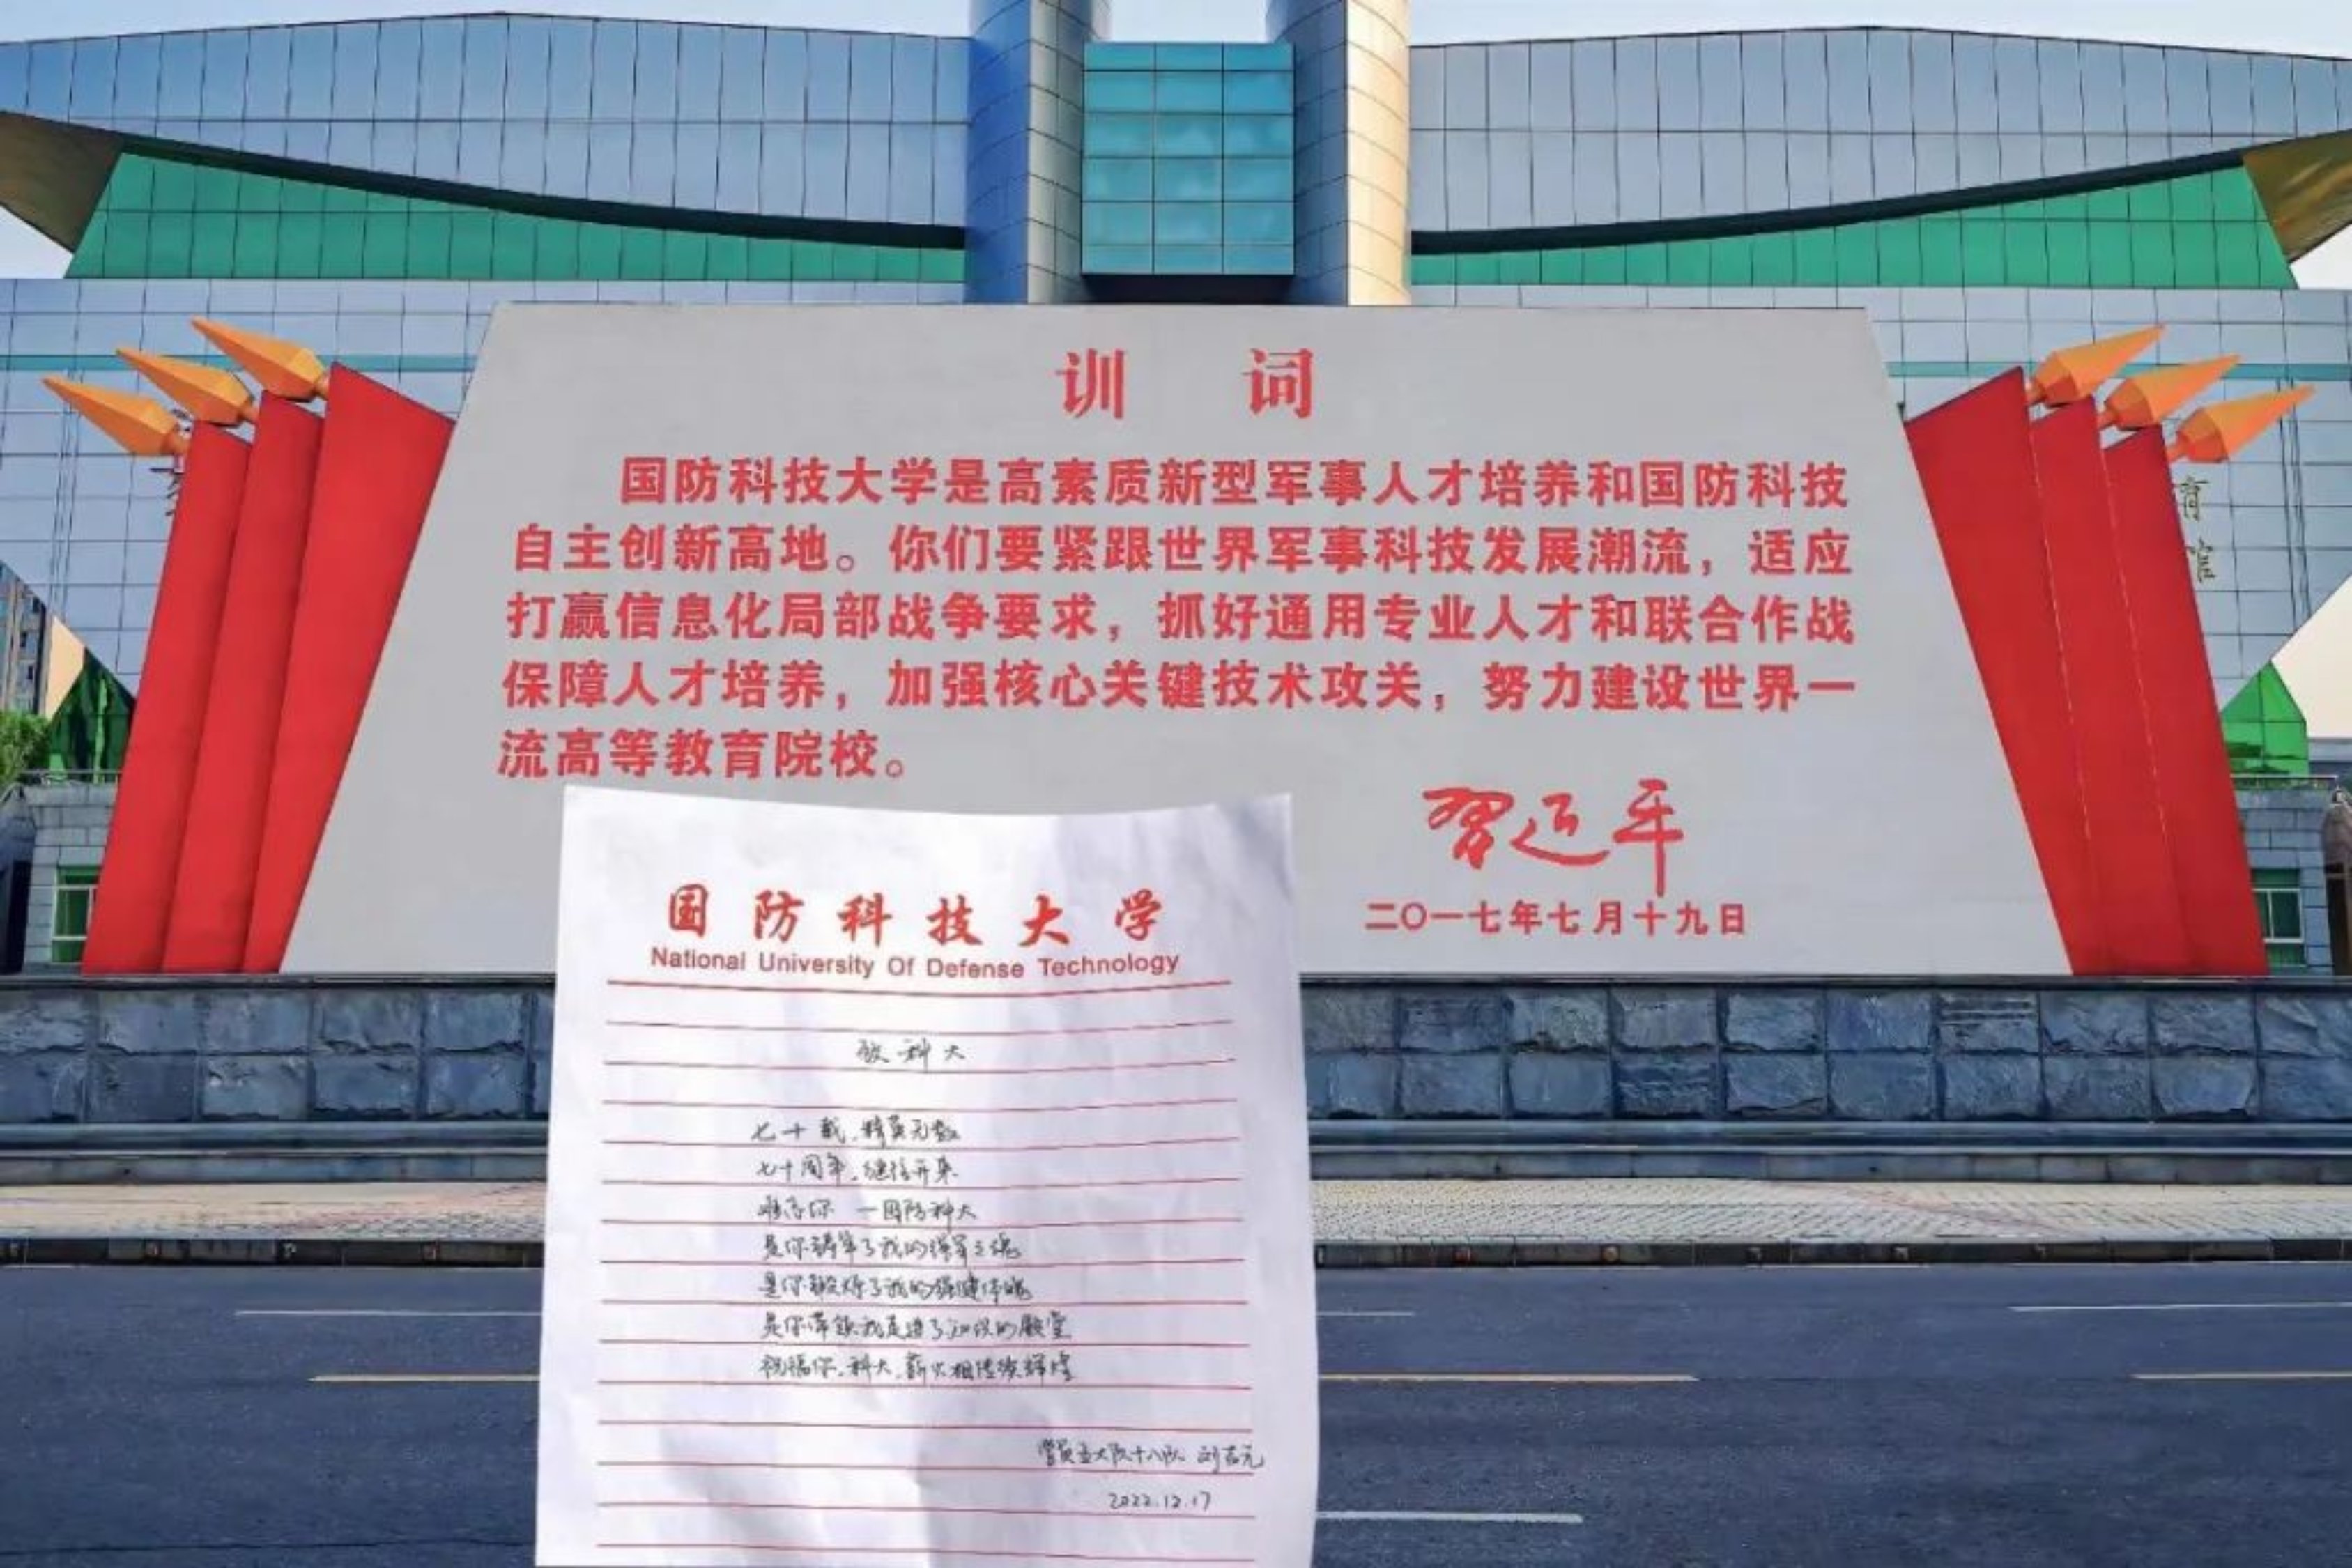 训 词
国防科技大学是高素质新型军事人才培养和国防科技
自主创新高地。你们要紧跟世界军事科技发展潮流，适应
打赢信息化局部战争要求，抓好通用专业人才和联合作战
保障人才培养，加强核心关键技术攻关，努力建设世界一
流高等教育院校。
习近平
二〇一七年七月十九日
育
馆
国防科技大学
National University Of Defense Technology
致科大
七十载，精英无数
七十周年，继往开来
唯有你 一国防科大
是你铸牢了我的强军之魂
是你锻炼了我的强健体魄
是你带领我走进了知识的殿堂
祝福你，科大，薪火相传续辉煌
学员五大队十八队 刘吉元
2022.12.17